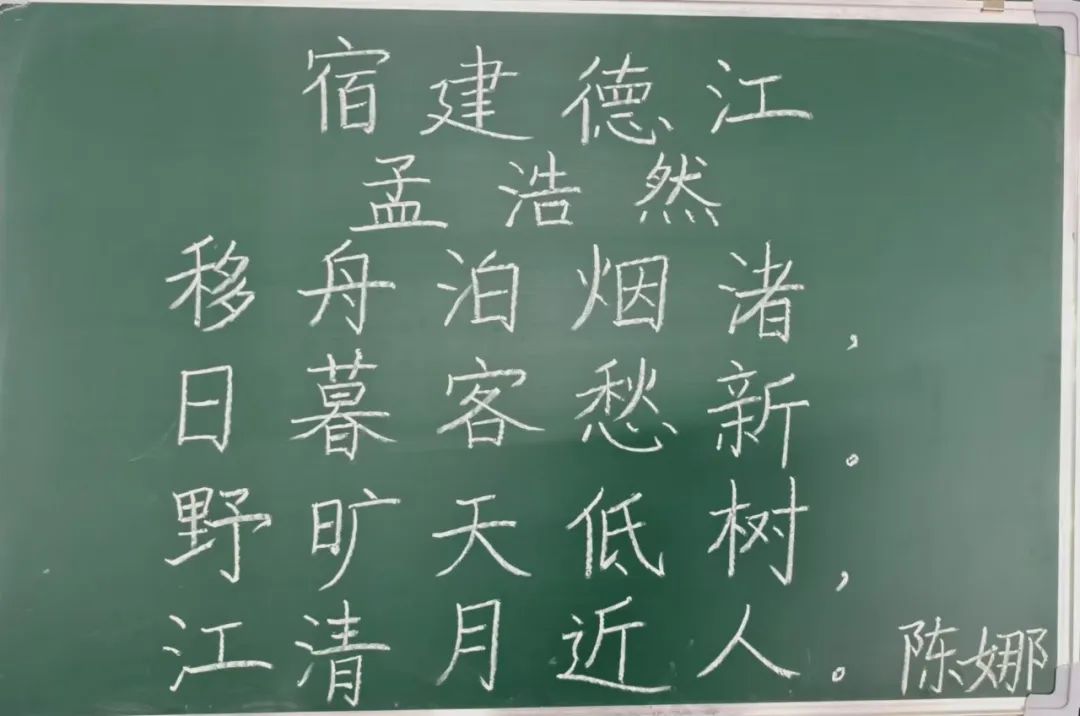 宿建德江
孟浩然
移舟泊烟渚，
日暮客愁新。
野旷天低树，
江清月近人。
陈娜